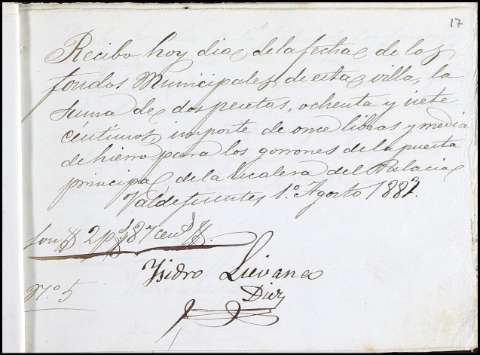 17
Recibo hoy dia de la fecha de los
fondos Municipales de esta villa, la
suma de dos pesetas, ochenta y siete
centimos, importe de once libras y media
de hierro para los gorrones de la puerta
principal de la escalera del Palacio
Valdefuentes 1.º Agosto 188
Son 2 p 87 cent
Ysidro Lievana
Diez
Nº 5